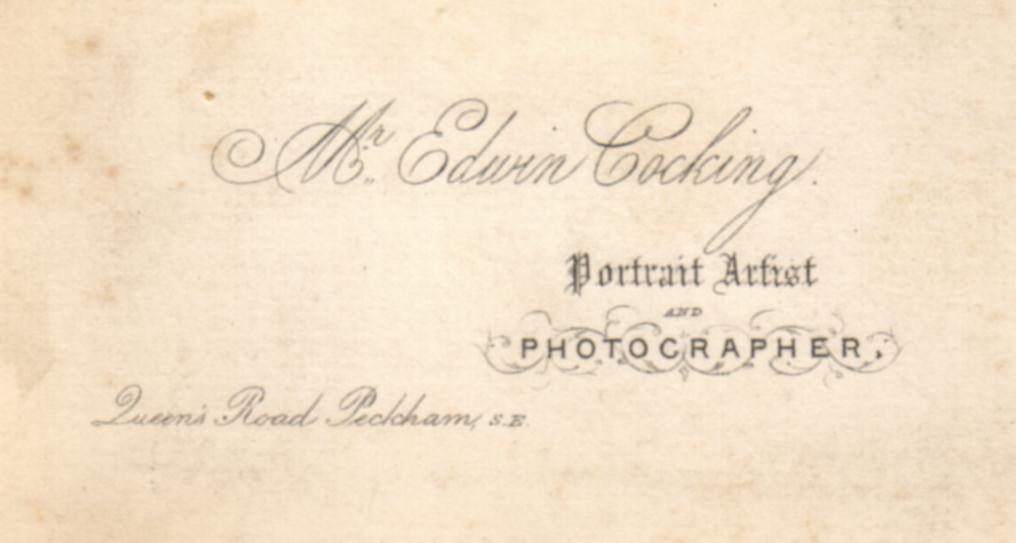 Mr. Edwin Cocking.
Portrait Artist
AND
PHOTOGRAPHER,
Queen's Road Peckham, S.E.